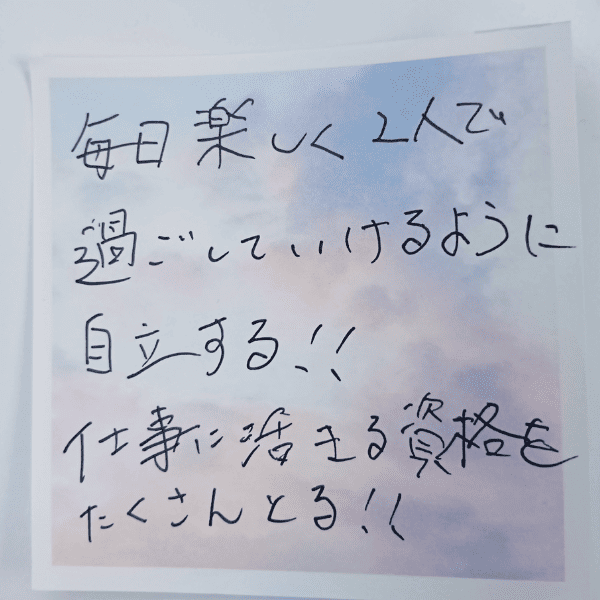 毎日楽しく2人で
過ごしていけるように
自立する!!
仕事に活きる資格を
たくさんとる!!